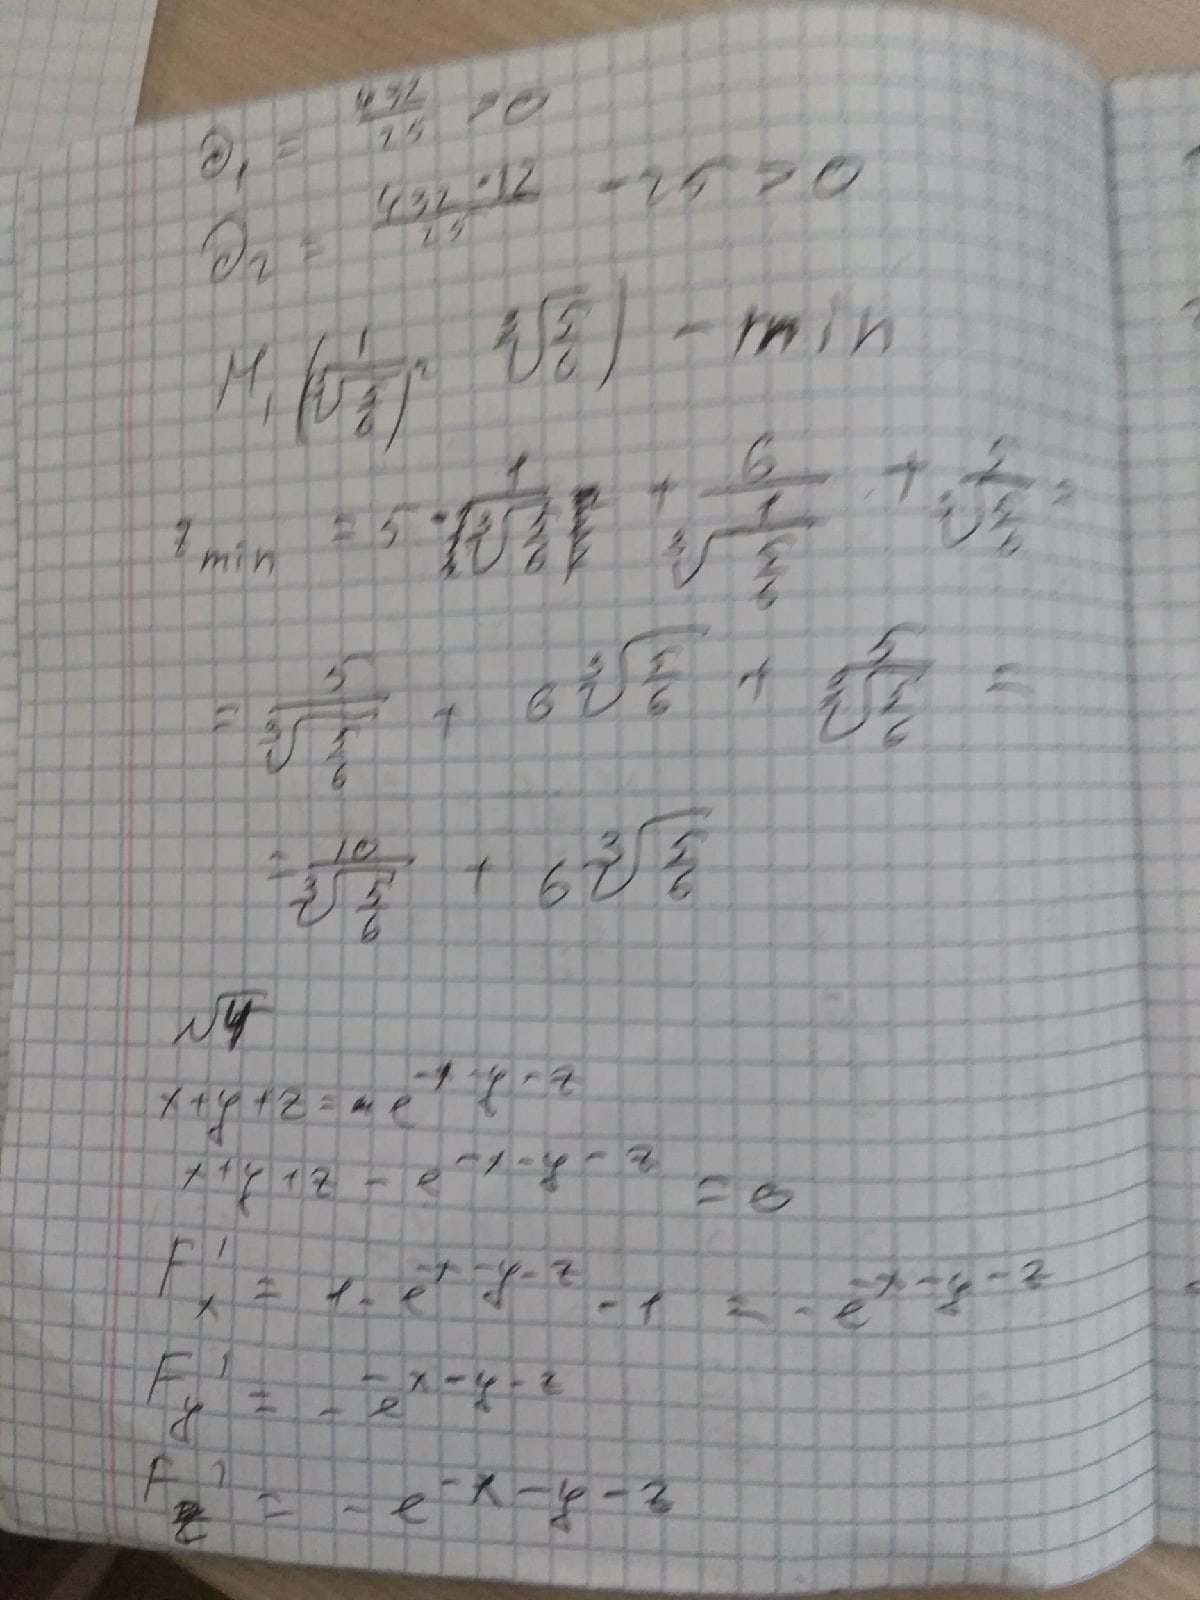 ∂₁ = 432/25 > 0
∂₂ = 432·12/25 - 25 > 0
M₁ (1/(∛(5/6))², ∛(5/6)) - min
z min = 5 · 1/∛(5/6) + 6/(1/∛(5/6)) + 5/∛(5/6) =
= 5/∛(5/6) + 6∛(5/6) + 5/∛(5/6) =
= 10/∛(5/6) + 6∛(5/6)
√4
x+y+z = e^(-x-y-z)
x+y+z - e^(-x-y-z) = 0
F'x = 1 - e^(-x-y-z) - 1 = - e^(-x-y-z)
F'y = - e^(-x-y-z)
F'z = - e^(-x-y-z)